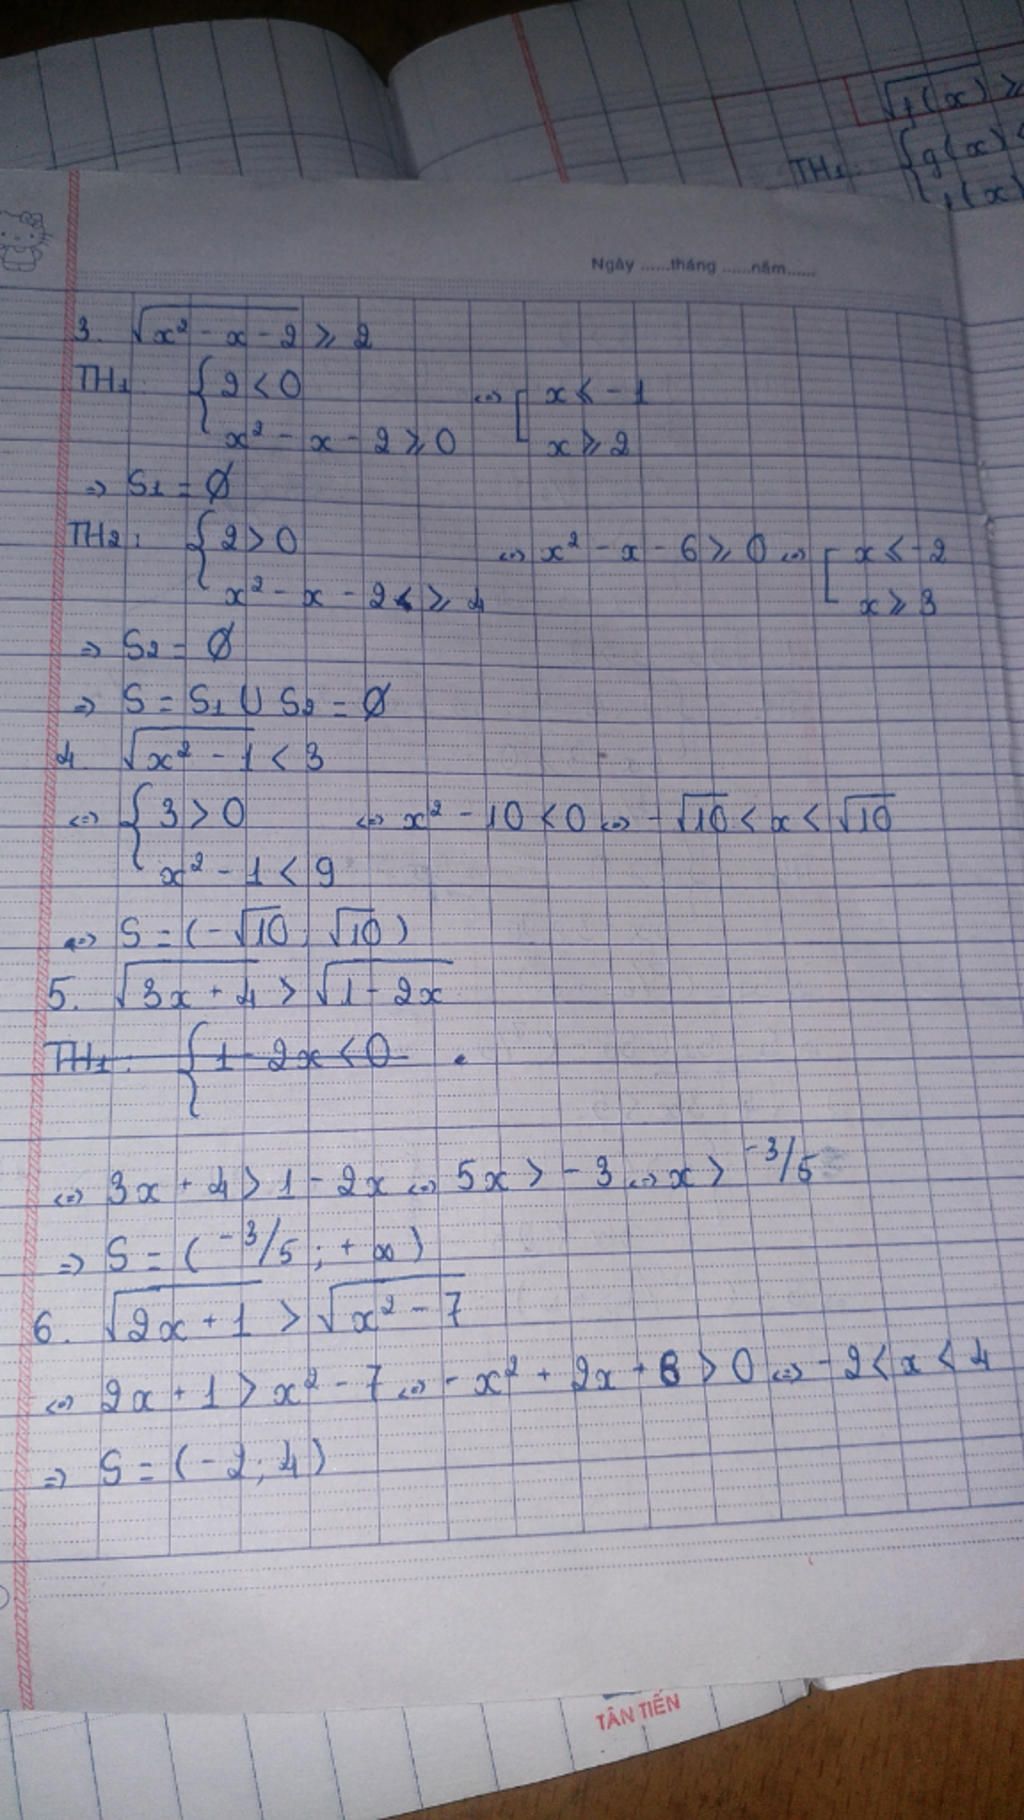 √f(x) ≥
TH1: { g(x) <
Ngày ......tháng ......năm......
3. √x² - x - 2 ≥ 2
TH1: { 2 < 0
x² - x - 2 ≥ 0 ⇔ [ x ≤ -1
x ≥ 2
⇒ S1 = ∅
TH2: { 2 > 0
x² - x - 2 < ≥ 4 ⇔ x² - x - 6 ≥ 0 ⇔ [ x ≤ -2
x ≥ 3
⇒ S2 = ∅
⇒ S = S1 ∪ S2 = ∅
4. √x² - 1 < 3
⇔ { 3 > 0 ⇔ x² - 10 < 0 ⇔ -√10 < x < √10
x² - 1 < 9
⇔ S = (-√10; √10)
5. √3x + 4 > √1 - 2x
TH1: { 1 - 2x < 0
⇔ 3x + 4 > 1 - 2x ⇔ 5x > -3 ⇔ x > -3/5
⇒ S = (-3/5; +∞)
6. √2x + 1 > √x² - 7
⇔ 2x + 1 > x² - 7 ⇔ -x² + 2x + 8 > 0 ⇔ -2 < x < 4
⇒ S = (-2; 4)
TÂN TIẾN